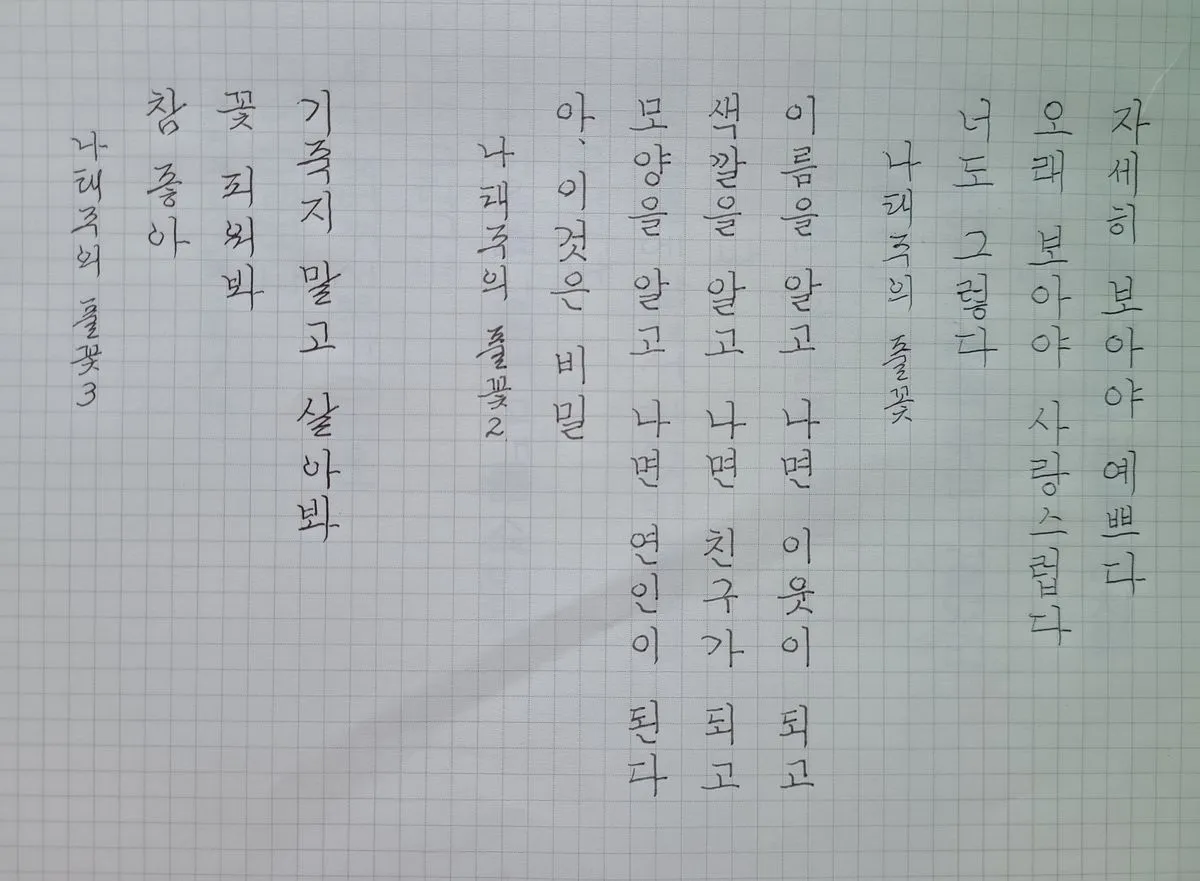 자세히 보아야 예쁘다
오래 보아야 사랑스럽다
너도 그렇다
나태주의 풀꽃
이름을 알고 나면 이웃이 되고
색깔을 알고 나면 친구가 되고
모양을 알고 나면 연인이 된다
아, 이것은 비밀
나태주의 풀꽃2
기죽지 말고 살아봐
꽃 피워봐
참 좋아
나태주의 풀꽃3